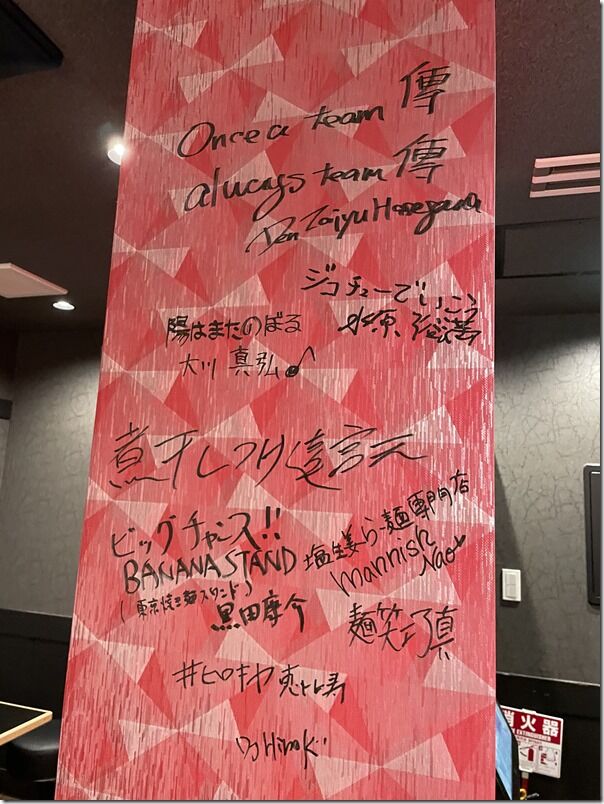 Once a team 傳
always team 傳
Den Taiyu Hasegawa
ジコチューでいこう
陽はまたのぼる
大川 真弘
煮干しつけ
ビッグチャンス!!
BANANA STAND
(東京焼き麺スタンド)
黒田康介
塩生姜らー麺専門店
Mannish
Nao
麺笑
#ヒロキヤ恵比寿
DJ Hiroki
消火器
EXTINGUISHER